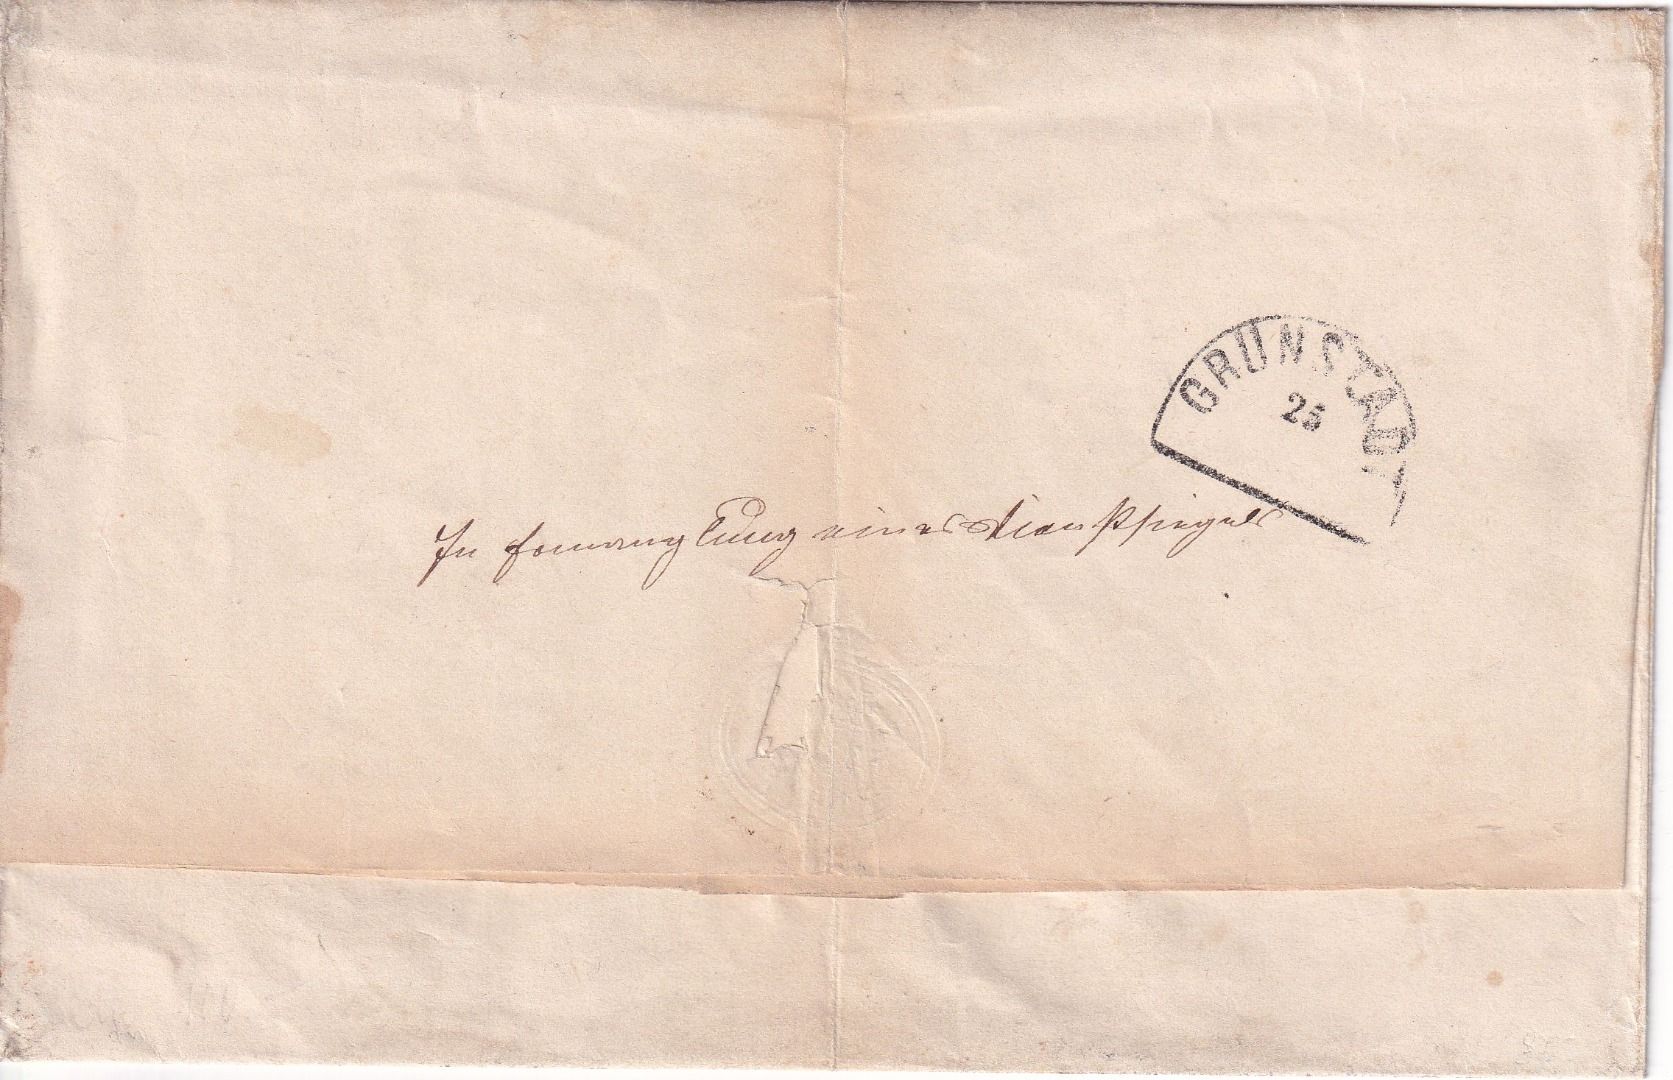 GRÜNSTADT
25
In Ermanglung eines Dienstsiegels